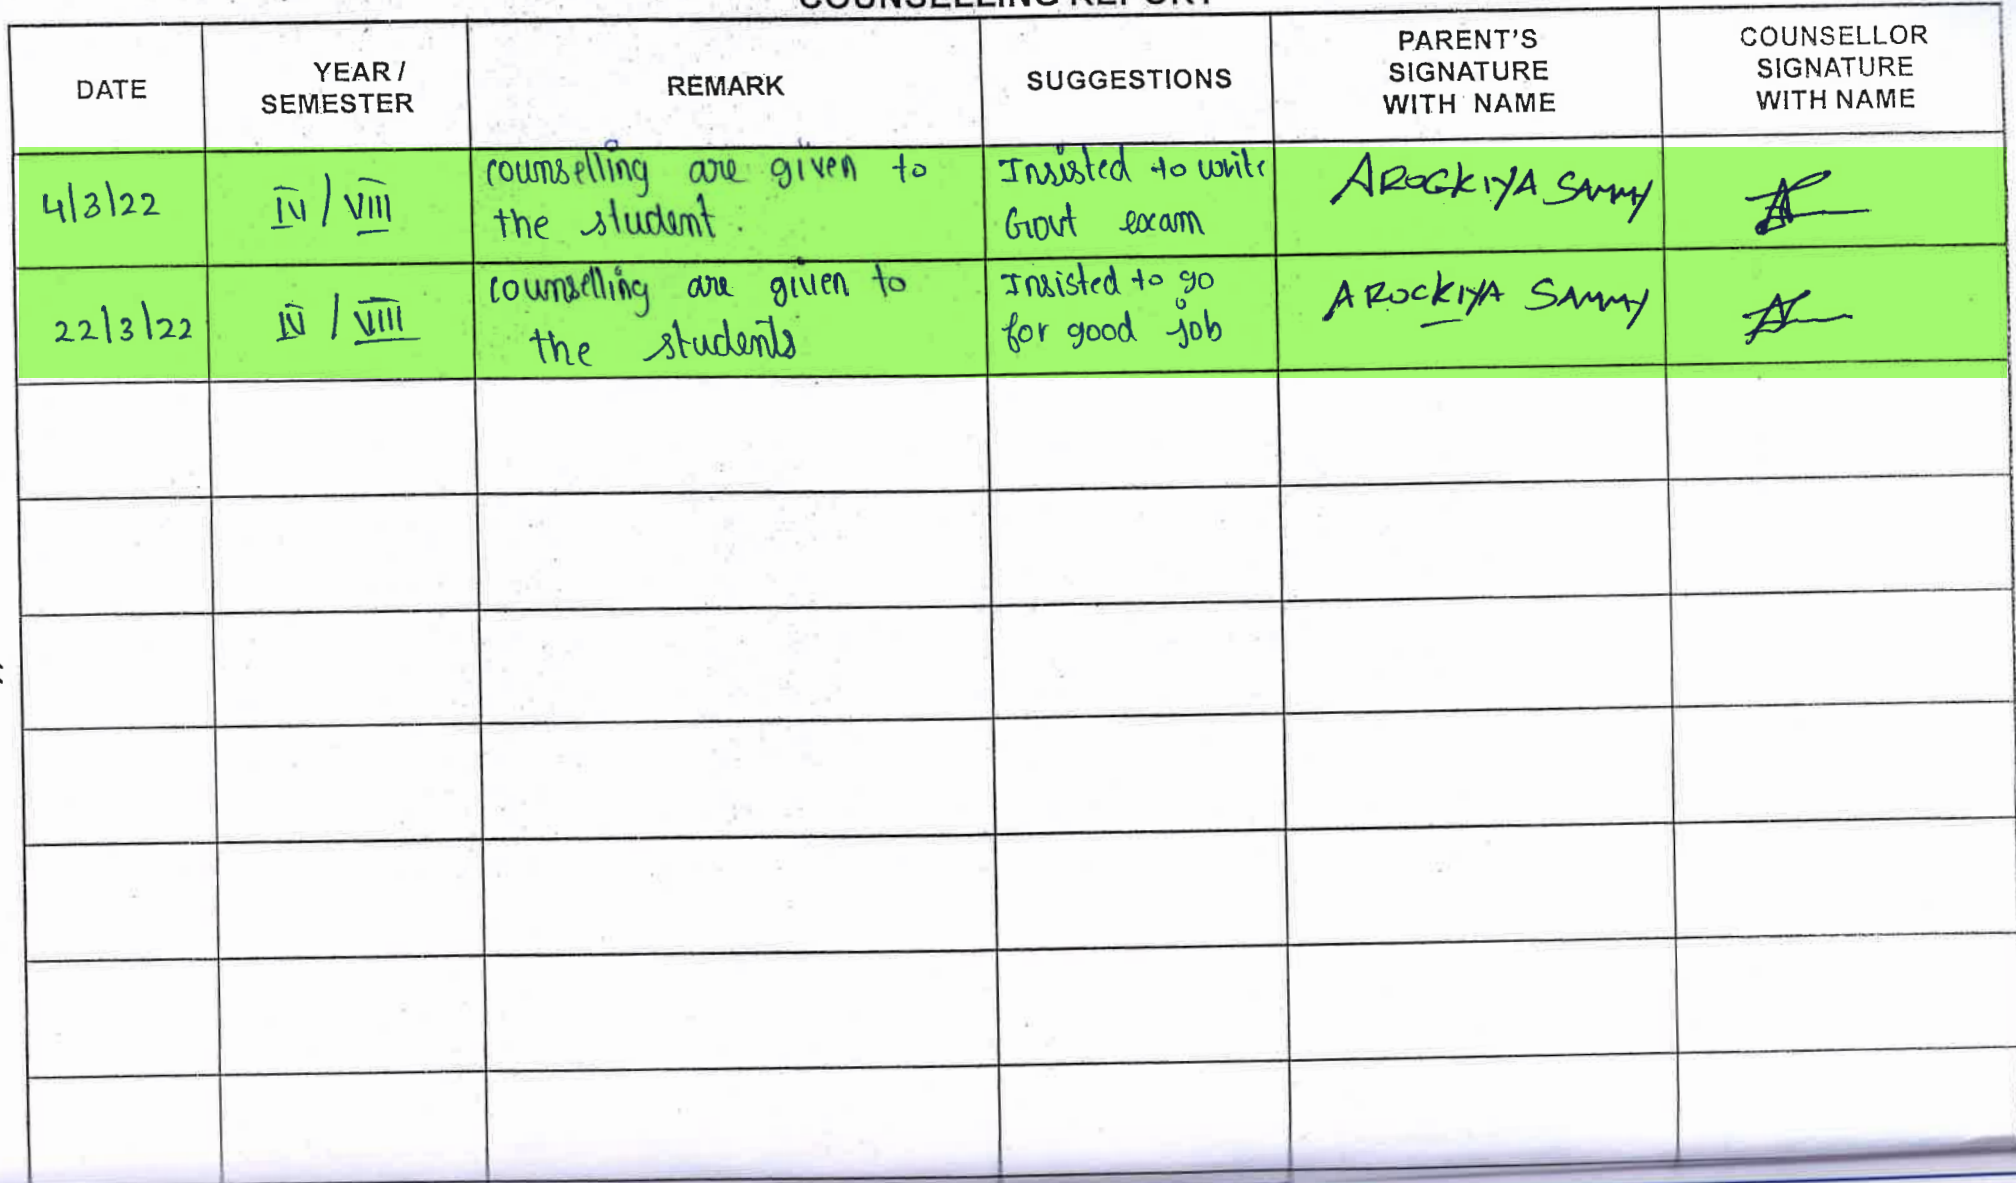 COUNSELLING REPORT
DATE
YEAR /
SEMESTER
REMARK
SUGGESTIONS
PARENT'S
SIGNATURE
WITH NAME
COUNSELLOR
SIGNATURE
WITH NAME
4/3/22
IV / VIII
counselling are given to
the student.
Insisted to write
Govt exam
AROCKIYA SAMMY
22/3/22
IV / VIII
counselling are given to
the students
Insisted to go
for good job
AROCKIYA SAMMY